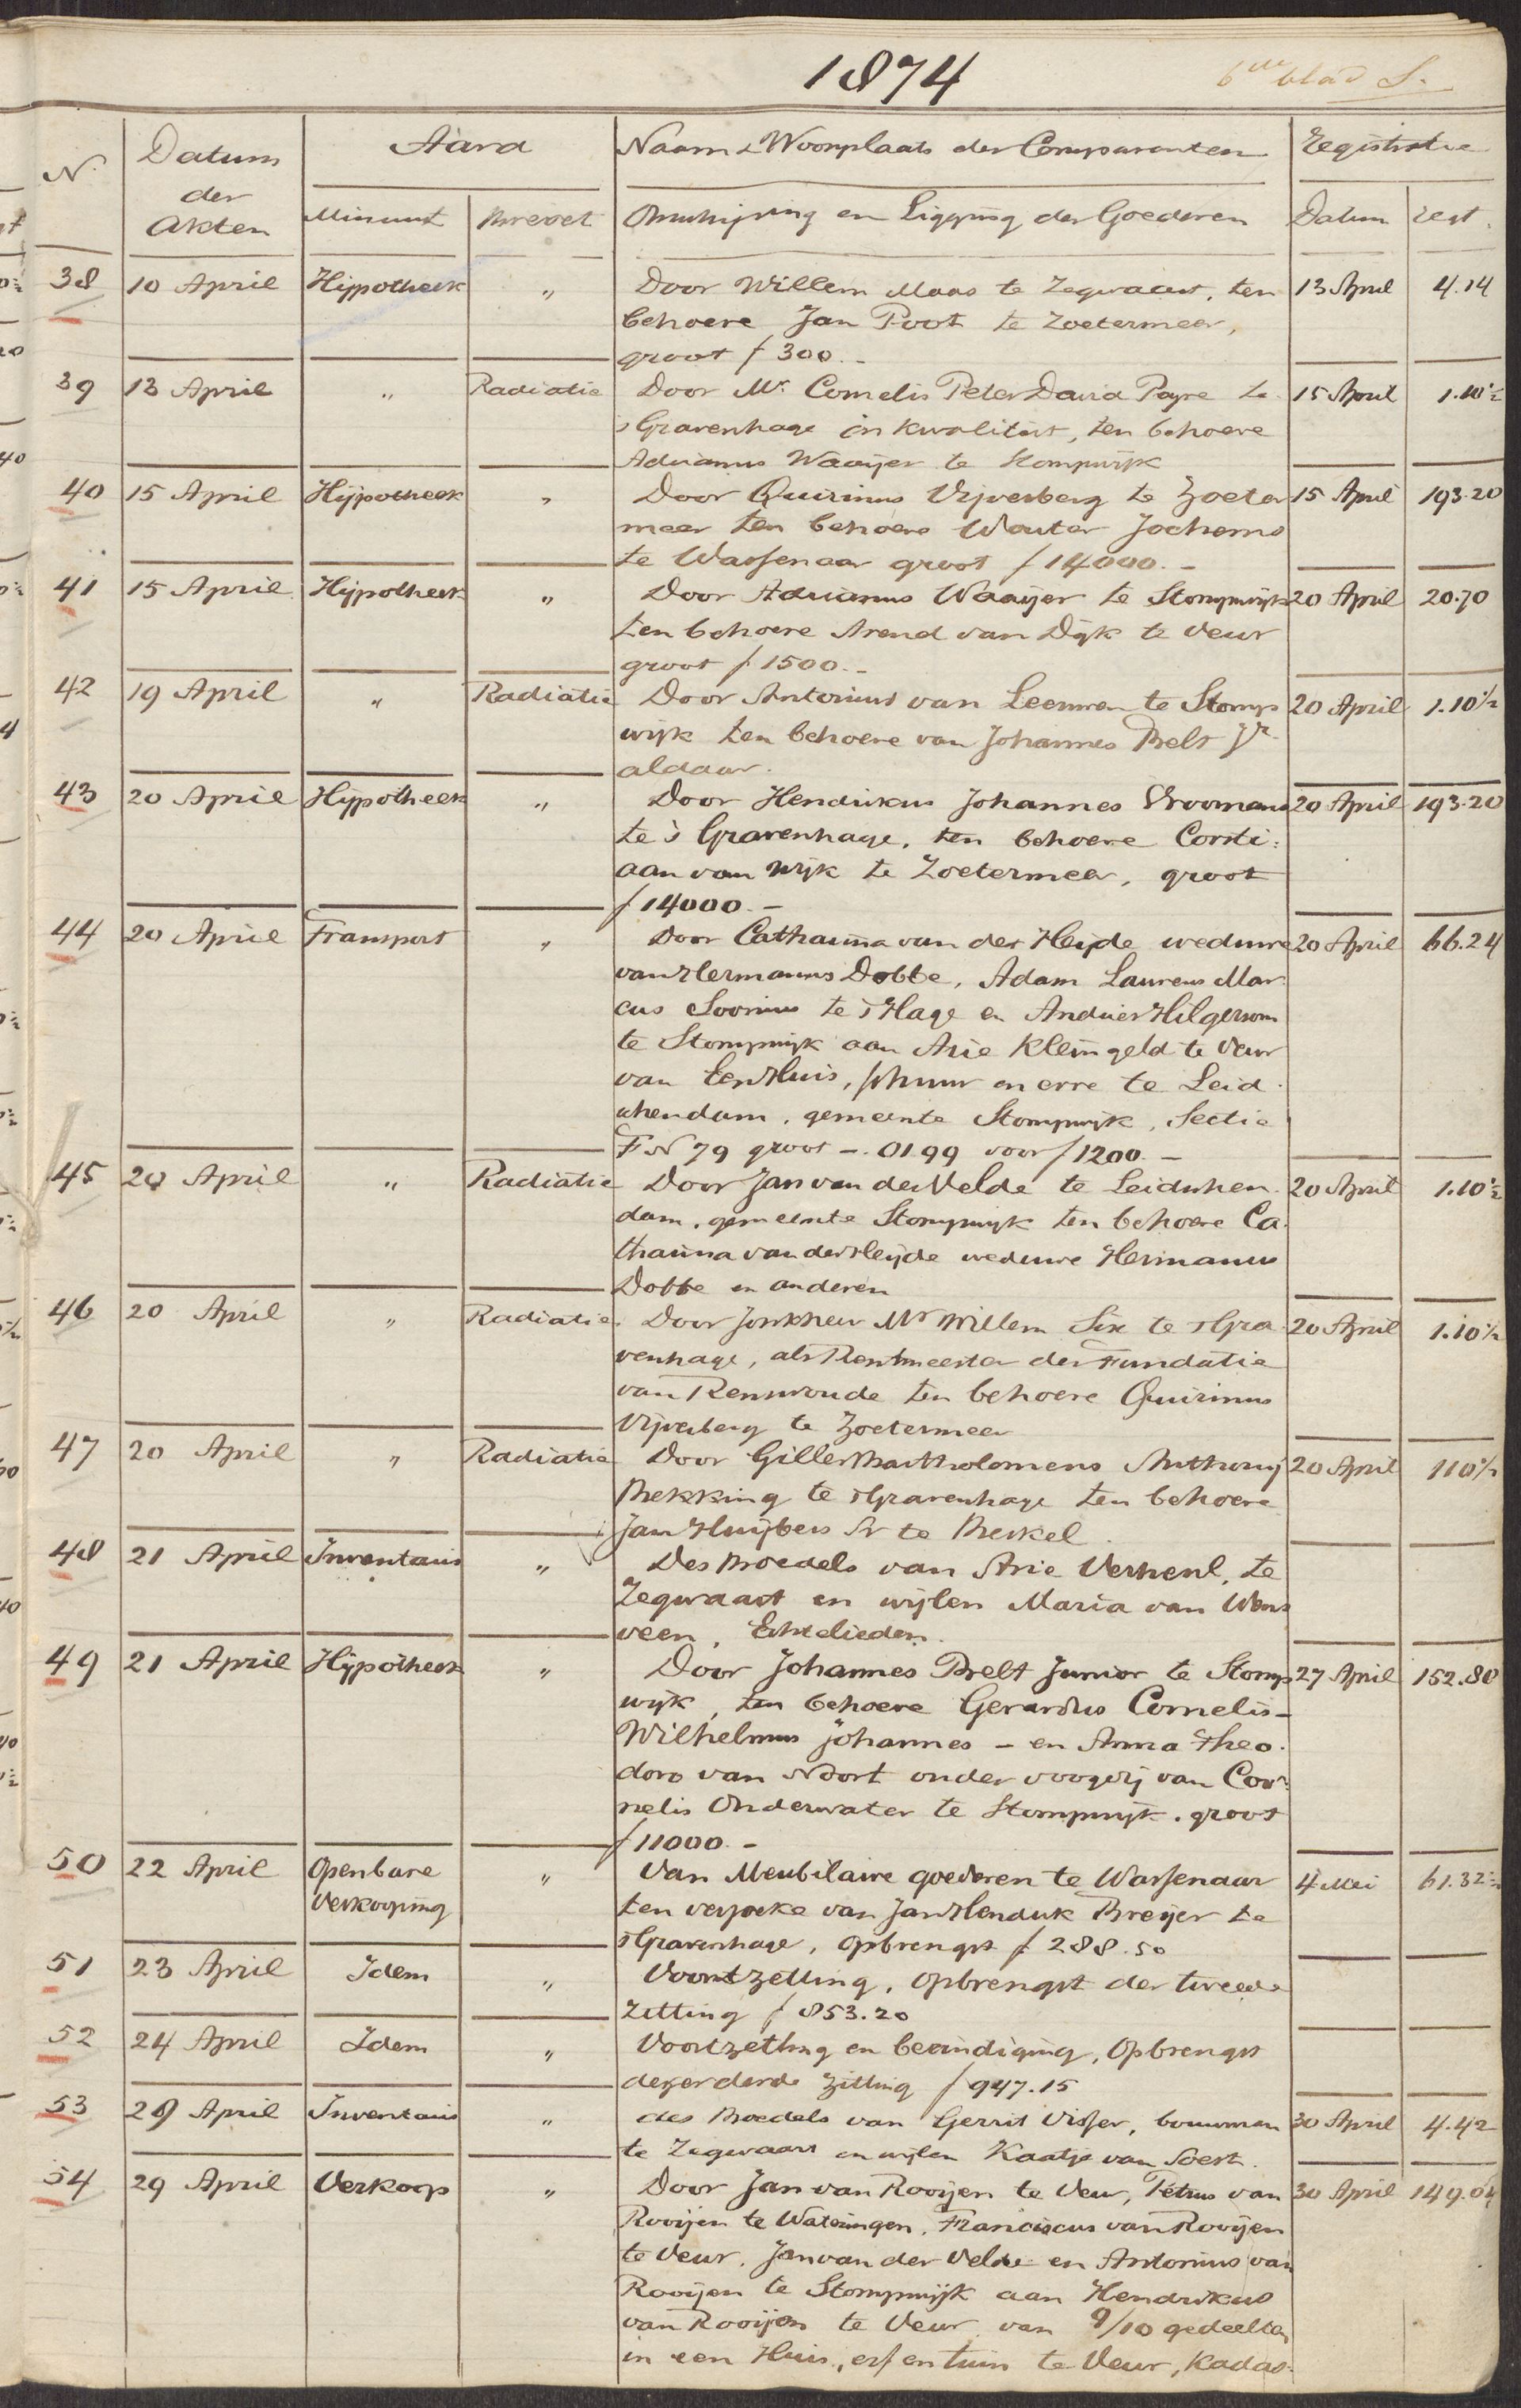 1874
6de blad S.
N. Datum der Akten Aard Naam & Woonplaats der Comparanten Registratie
Minuut Brevet Omschrijving en Ligging der Goederen Datum regt.
38 10 April Hijpotheek " Door Willem Maas te Zegwaart, ten 13 April 4.14
behoeve Jan Poot te Zoetermeer,
groot f 300.-
39 13 April " Radiatie Door Mr. Cornelis Peter David Pape te 15 April 1.10½
's Gravenhage in kwaliteit, ten behoeve
Adrianus Waaijer te Stompwijk
40 15 April Hijpotheek " Door Quirinus Vijverberg te Zoeter 15 April 193.20
meer ten behoeve Wouter Jochems
te Wassenaar groot f 14000.-
41 15 April Hijpotheek " Door Adrianus Waaijer te Stompwijk 20 April 20.70
ten behoeve Arend van Dijk te Veur
groot f 1500.-
42 19 April " Radiatie Door Antonius van Leeuwen te Stomp 20 April 1.10½
wijk ten behoeve van Johannes Belt Jr.
aldaar.
43 20 April Hijpotheek " Door Hendrikus Johannes Vroomans 20 April 193.20
te 's Gravenhage, ten behoeve Corsti=
aan van Wijk te Zoetermeer, groot
f 14000.-
44 20 April Transport " Door Catharina van der Heijde weduwe 20 April 66.24
van Hermanus Dobbe, Adam Laurens Mar
cus te 's Hage en Andries Hilgersom
te Stompwijk aan Arie Kleingeld te Veur
van Een Huis, schuur en erve te Leid
schendam, gemeente Stompwijk, Sectie
F N 79 groot -.01.99 voor f 1200.-
45 20 April " Radiatie Door Jan van der Velde te Leidschen 20 April 1.10½
dam, gemeente Stompwijk ten behoeve Ca
tharina van der Heijde weduwe Hermanus
Dobbe en anderen
46 20 April " Radiatie. Door Jonkheer Mr Willem Six te 's Gra 20 April 1.10½
venhage, als Rentmeester der Fundatie
van Renswoude ten behoeve Quirinus
Vijverberg te Zoetermeer
47 20 April " Radiatie Door Gilles Bartholomeus Anthonij 20 April 110½
Bekking te 's Gravenhage ten behoeve
Jan Huijbers Sr te Berkel.
48 21 April Inventaris " Des Boedels van Arie Verheul, te
Zegwaart en wijlen Maria van Wens
veen, Echtelieden.
49 21 April Hijpotheek " Door Johannes Belt Junior te Stomp 27 April 152.80
wijk, ten behoeve Gerardus Cornelis -
Wilhelmus Johannes - en Anna Theo
dora van Noort onder voogdij van Cor=
nelis Onderwater te Stompwijk. groot
f 11000.-
50 22 April Openbare " Van Meubilaire goederen te Wassenaar 4 Mei 61.32½
Verkooping ten verzoeke van Jan Hendrik Breijer te
's Gravenhage, opbrengst f 288.50
51 23 April Idem " Voortzetting, opbrengst der tweede
zitting f 853.20
52 24 April Idem " Voortzetting en beeindiging, Opbrengst
dezer derde zitting f 947.15
53 29 April Inventaris " des Boedels van Gerrit Visser, bouwman 30 April 4.42
te Zegwaart en wijlen Kaatje van Soest.
54 29 April Verkoop " Door Jan van Rooijen te Veur, Petrus van 30 April 149.04
Rooijen te Wateringen, Franciscus van Rooijen
te Veur, Jan van der Velde en Antonius van
Rooijen te Stompwijk aan Hendrikus
van Rooijen te Veur, van 9/10 gedeelten
in een Huis, erf en tuin te Veur, Kadas-